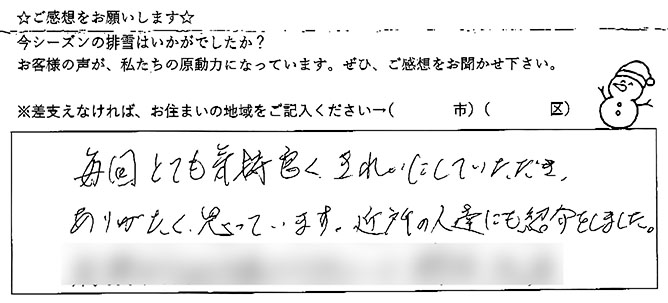 ☆ご感想をお願いします☆
今シーズンの排雪はいかがでしたか？
お客様の声が、私たちの原動力になっています。ぜひ、ご感想をお聞かせ下さい。
※差支えなければ、お住まいの地域をご記入ください→(　　　市）(　　　区）
毎回とても気持良く、きれいにしていただき、
ありがたく思っています。近所の人達にも紹介をしました。